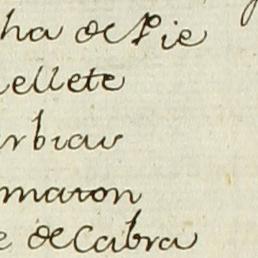 ha de Pie
ellete
rbiav
maron
e de Cabra